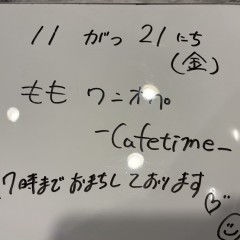 11 がつ 21 にち
(金)
もも ワンオペ
-Cafetime-
17時まで おまちしております